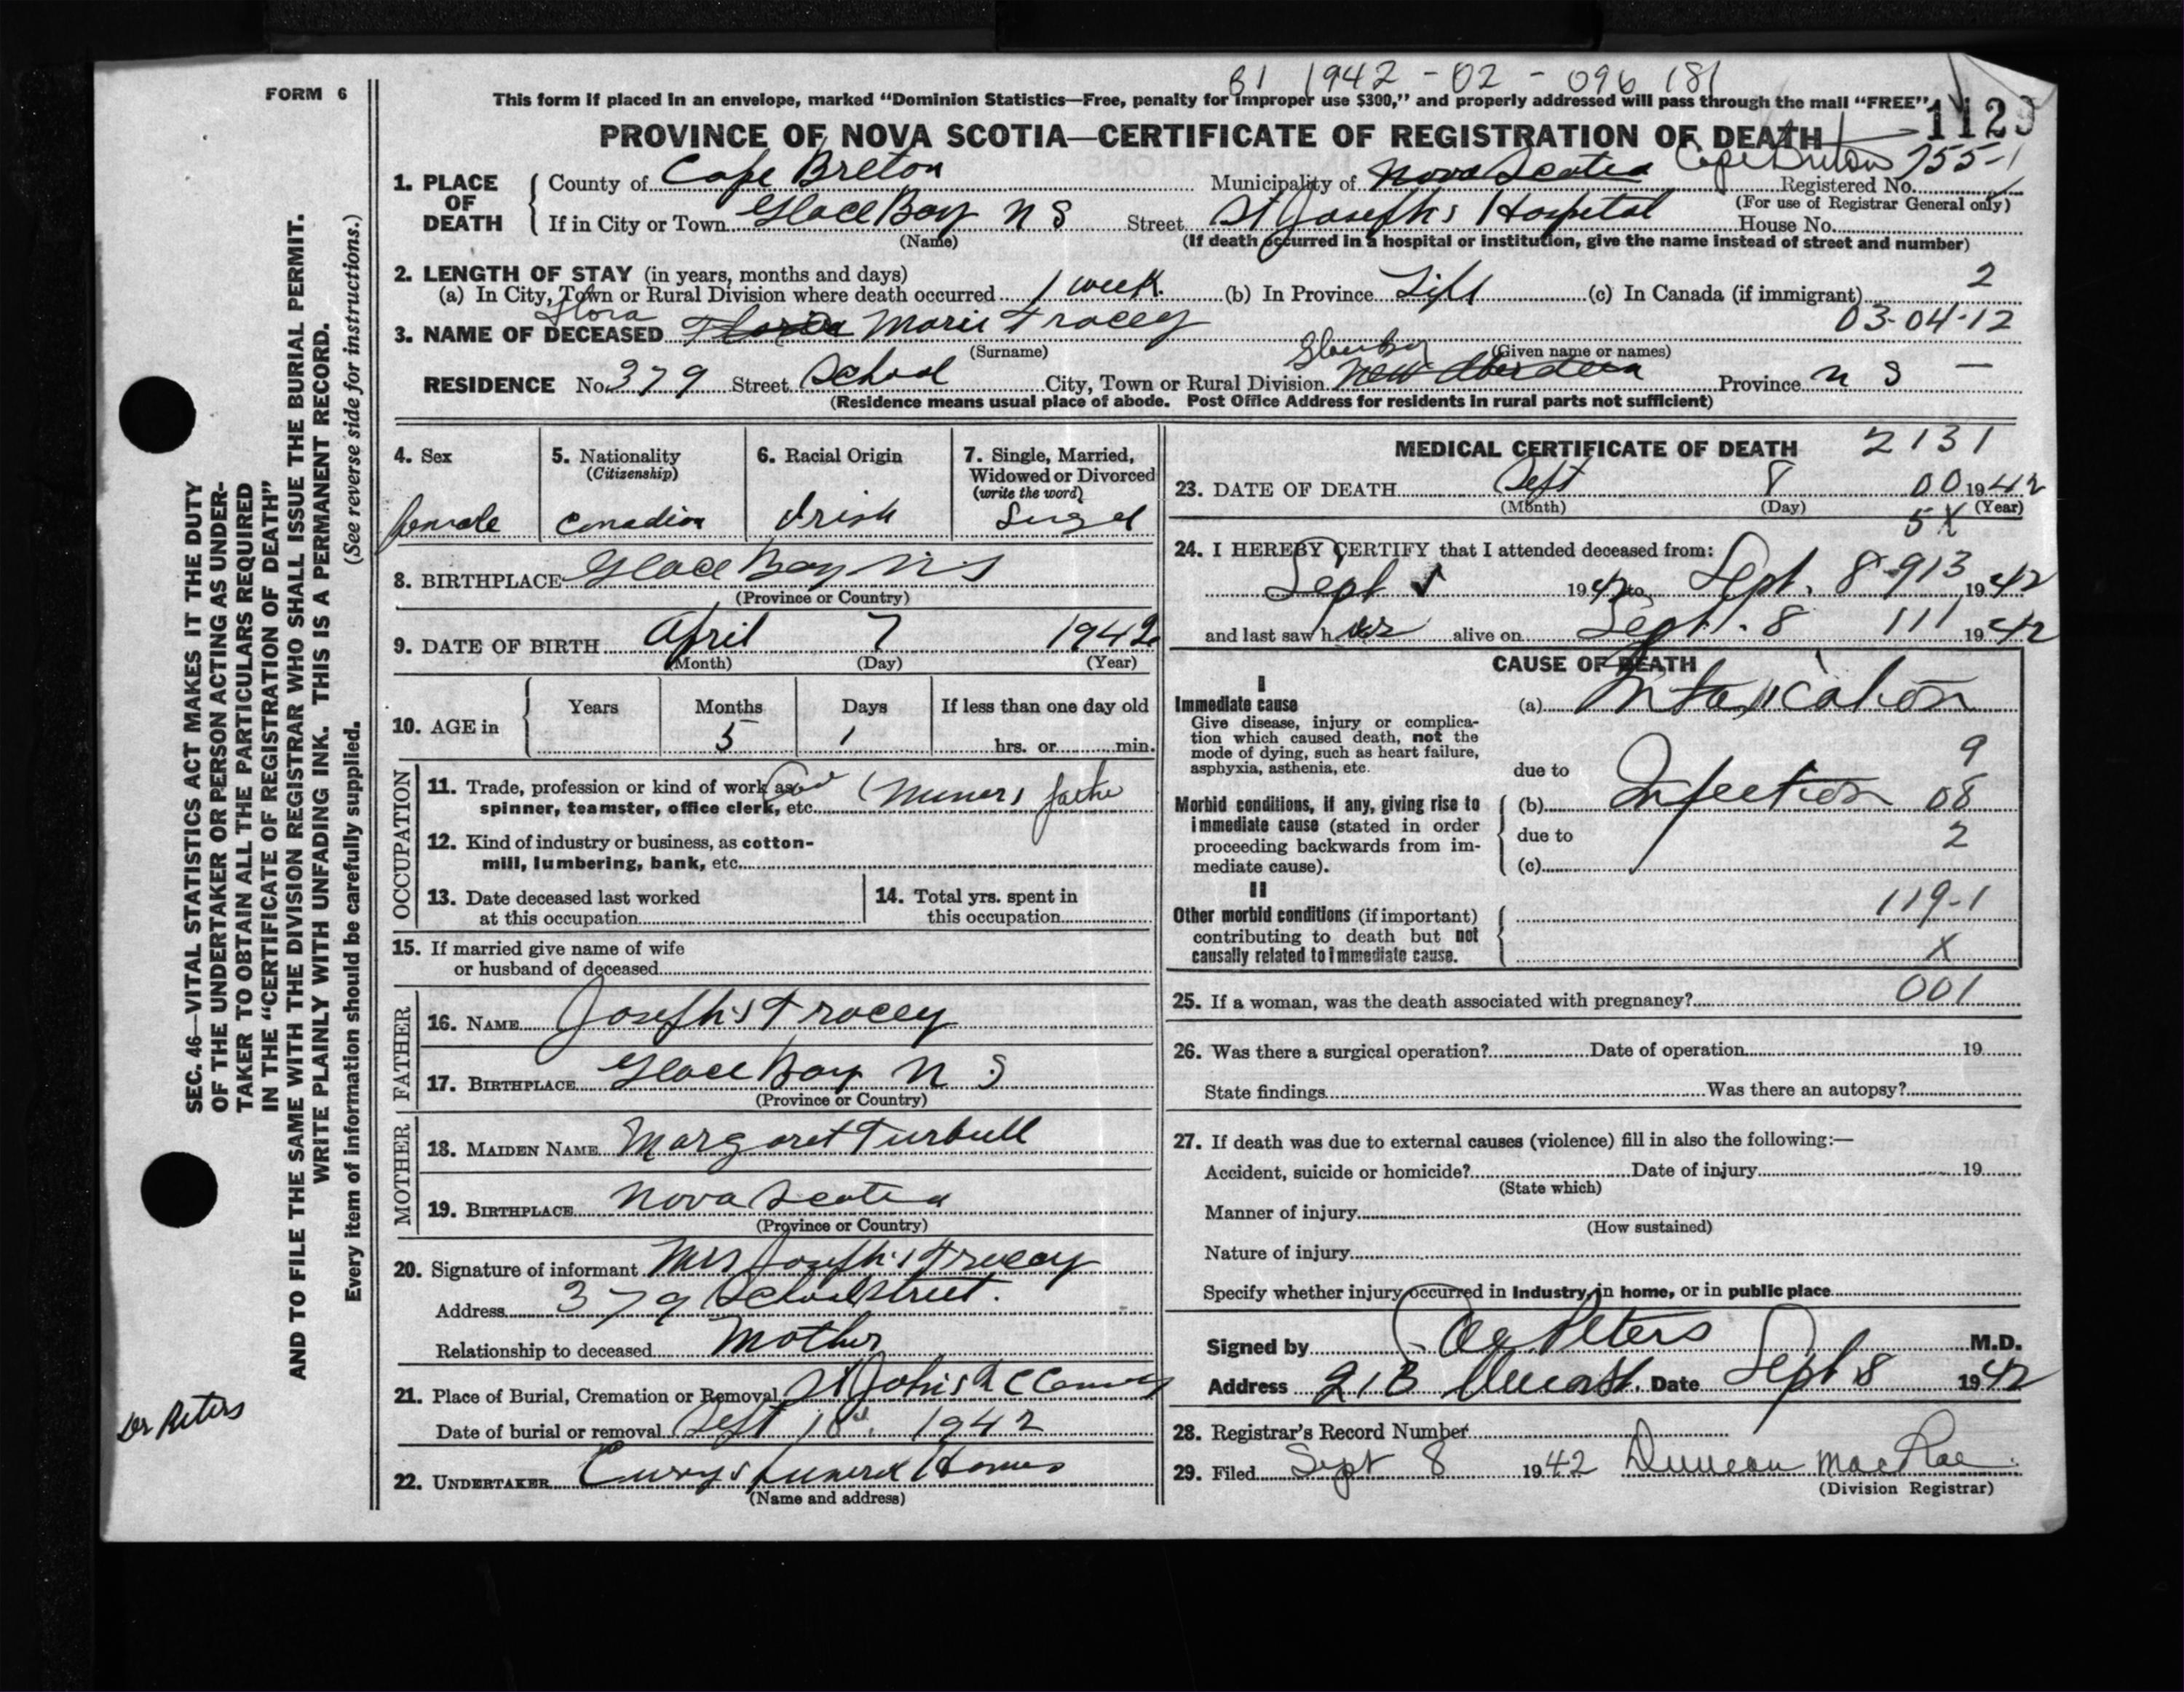 B1 1942 - 02 - 096 181
FORM 6
This form if placed in an envelope, marked “Dominion Statistics—Free, penalty for improper use $300,” and properly addressed will pass through the mail “FREE”
1129
PROVINCE OF NOVA SCOTIA—CERTIFICATE OF REGISTRATION OF DEATH
1. PLACE OF DEATH
County of Cape Breton Municipality of Nova Scotia Cape Breton Registered No. 755-1
(For use of Registrar General only)
If in City or Town Glace Bay N S Street St Joseph's Hospital House No.
(Name) (If death occurred in a hospital or institution, give the name instead of street and number)
2. LENGTH OF STAY (in years, months and days)
(a) In City, Town or Rural Division where death occurred 1 week (b) In Province Life (c) In Canada (if immigrant) 2
Flora
3. NAME OF DECEASED Marie Tracey 03-04-12
(Surname) (Given name or names)
RESIDENCE No. 379 Street School City, Town or Rural Division New Aberdeen Province N S
(Residence means usual place of abode. Post Office Address for residents in rural parts not sufficient)
4. Sex
female
5. Nationality
(Citizenship)
Canadian
6. Racial Origin
Irish
7. Single, Married,
Widowed or Divorced
(write the word)
8. BIRTHPLACE Glace Bay N S
(Province or Country)
9. DATE OF BIRTH April 7 1942
(Month) (Day) (Year)
10. AGE in
Years Months Days If less than one day old
5 1 hrs. or min.
OCCUPATION
11. Trade, profession or kind of work as
spinner, teamster, office clerk, etc. (Miner)
12. Kind of industry or business, as cotton-
mill, lumbering, bank, etc.
13. Date deceased last worked
at this occupation
14. Total yrs. spent in
this occupation
15. If married give name of wife
or husband of deceased
FATHER
16. NAME Joseph Tracey
17. BIRTHPLACE Glace Bay N S
(Province or Country)
MOTHER
18. MAIDEN NAME Margaret Turbull
19. BIRTHPLACE Nova Scotia
(Province or Country)
20. Signature of informant Mrs Joseph Tracey
Address 379 School Street.
Relationship to deceased Mother
21. Place of Burial, Cremation or Removal St John's
Date of burial or removal Sept 1942
22. UNDERTAKER Currys Funeral Homes
(Name and address)
MEDICAL CERTIFICATE OF DEATH 2131
23. DATE OF DEATH Sept 8 00 1942
(Month) (Day) (Year)
5X
24. I HEREBY CERTIFY that I attended deceased from:
Sept 1942 to Sept. 8 913 1942
and last saw her alive on Sept. 8 111 1942
CAUSE OF DEATH
I
Immediate cause
Give disease, injury or complica-
tion which caused death, not the
mode of dying, such as heart failure,
asphyxia, asthenia, etc.
(a) Intoxication
9
due to
Morbid conditions, if any, giving rise to
immediate cause (stated in order
proceeding backwards from im-
mediate cause).
(b) Infection 08
due to 2
(c)
II
Other morbid conditions (if important)
contributing to death but not
causally related to immediate cause.
119-1
X
25. If a woman, was the death associated with pregnancy? 001
26. Was there a surgical operation? Date of operation 19
State findings Was there an autopsy?
27. If death was due to external causes (violence) fill in also the following:—
Accident, suicide or homicide? Date of injury 19
(State which)
Manner of injury
(How sustained)
Nature of injury
Specify whether injury occurred in Industry, in home, or in public place
Signed by Peters M.D.
Address Date Sept 8 1942
28. Registrar's Record Number
29. Filed Sept 8 1942 Duncan MacRae
(Division Registrar)
SEC. 46—VITAL STATISTICS ACT MAKES IT THE DUTY
OF THE UNDERTAKER OR PERSON ACTING AS UNDER-
TAKER TO OBTAIN ALL THE PARTICULARS REQUIRED
IN THE “CERTIFICATE OF REGISTRATION OF DEATH”
AND TO FILE THE SAME WITH THE DIVISION REGISTRAR WHO SHALL ISSUE THE BURIAL PERMIT.
WRITE PLAINLY WITH UNFADING INK. THIS IS A PERMANENT RECORD.
Every item of information should be carefully supplied. (See reverse side for instructions.)
Dr Peters